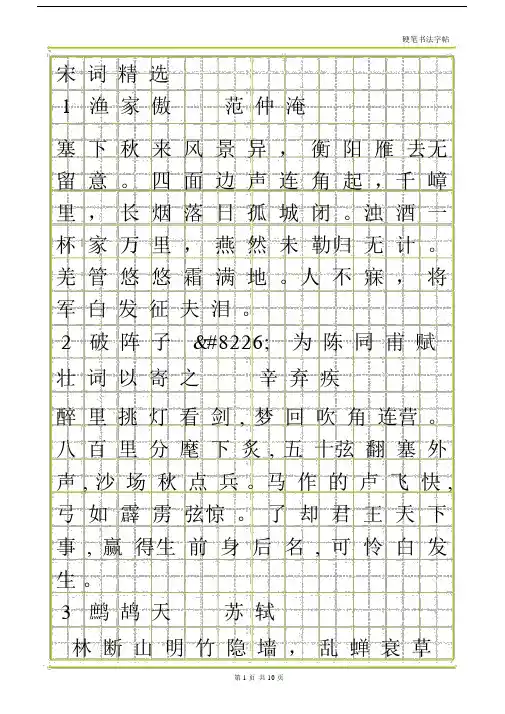 硬笔书法字帖
宋词精选
1 渔家傲 范仲淹
塞下秋来风景异，衡阳雁去无
留意。四面边声连角起，千嶂
里，长烟落日孤城闭。浊酒一
杯家万里，燕然未勒归无计。
羌管悠悠霜满地。人不寐，将
军白发征夫泪。
2 破阵子 &#8226; 为陈同甫赋
壮词以寄之 辛弃疾
醉里挑灯看剑,梦回吹角连营。
八百里分麾下炙,五十弦翻塞外
声,沙场秋点兵。马作的卢飞快,
弓如霹雳弦惊。了却君王天下
事,赢得生前身后名,可怜白发
生。
3 鹧鸪天 苏轼
林断山明竹隐墙，乱蝉衰草
第 1 页 共 10 页